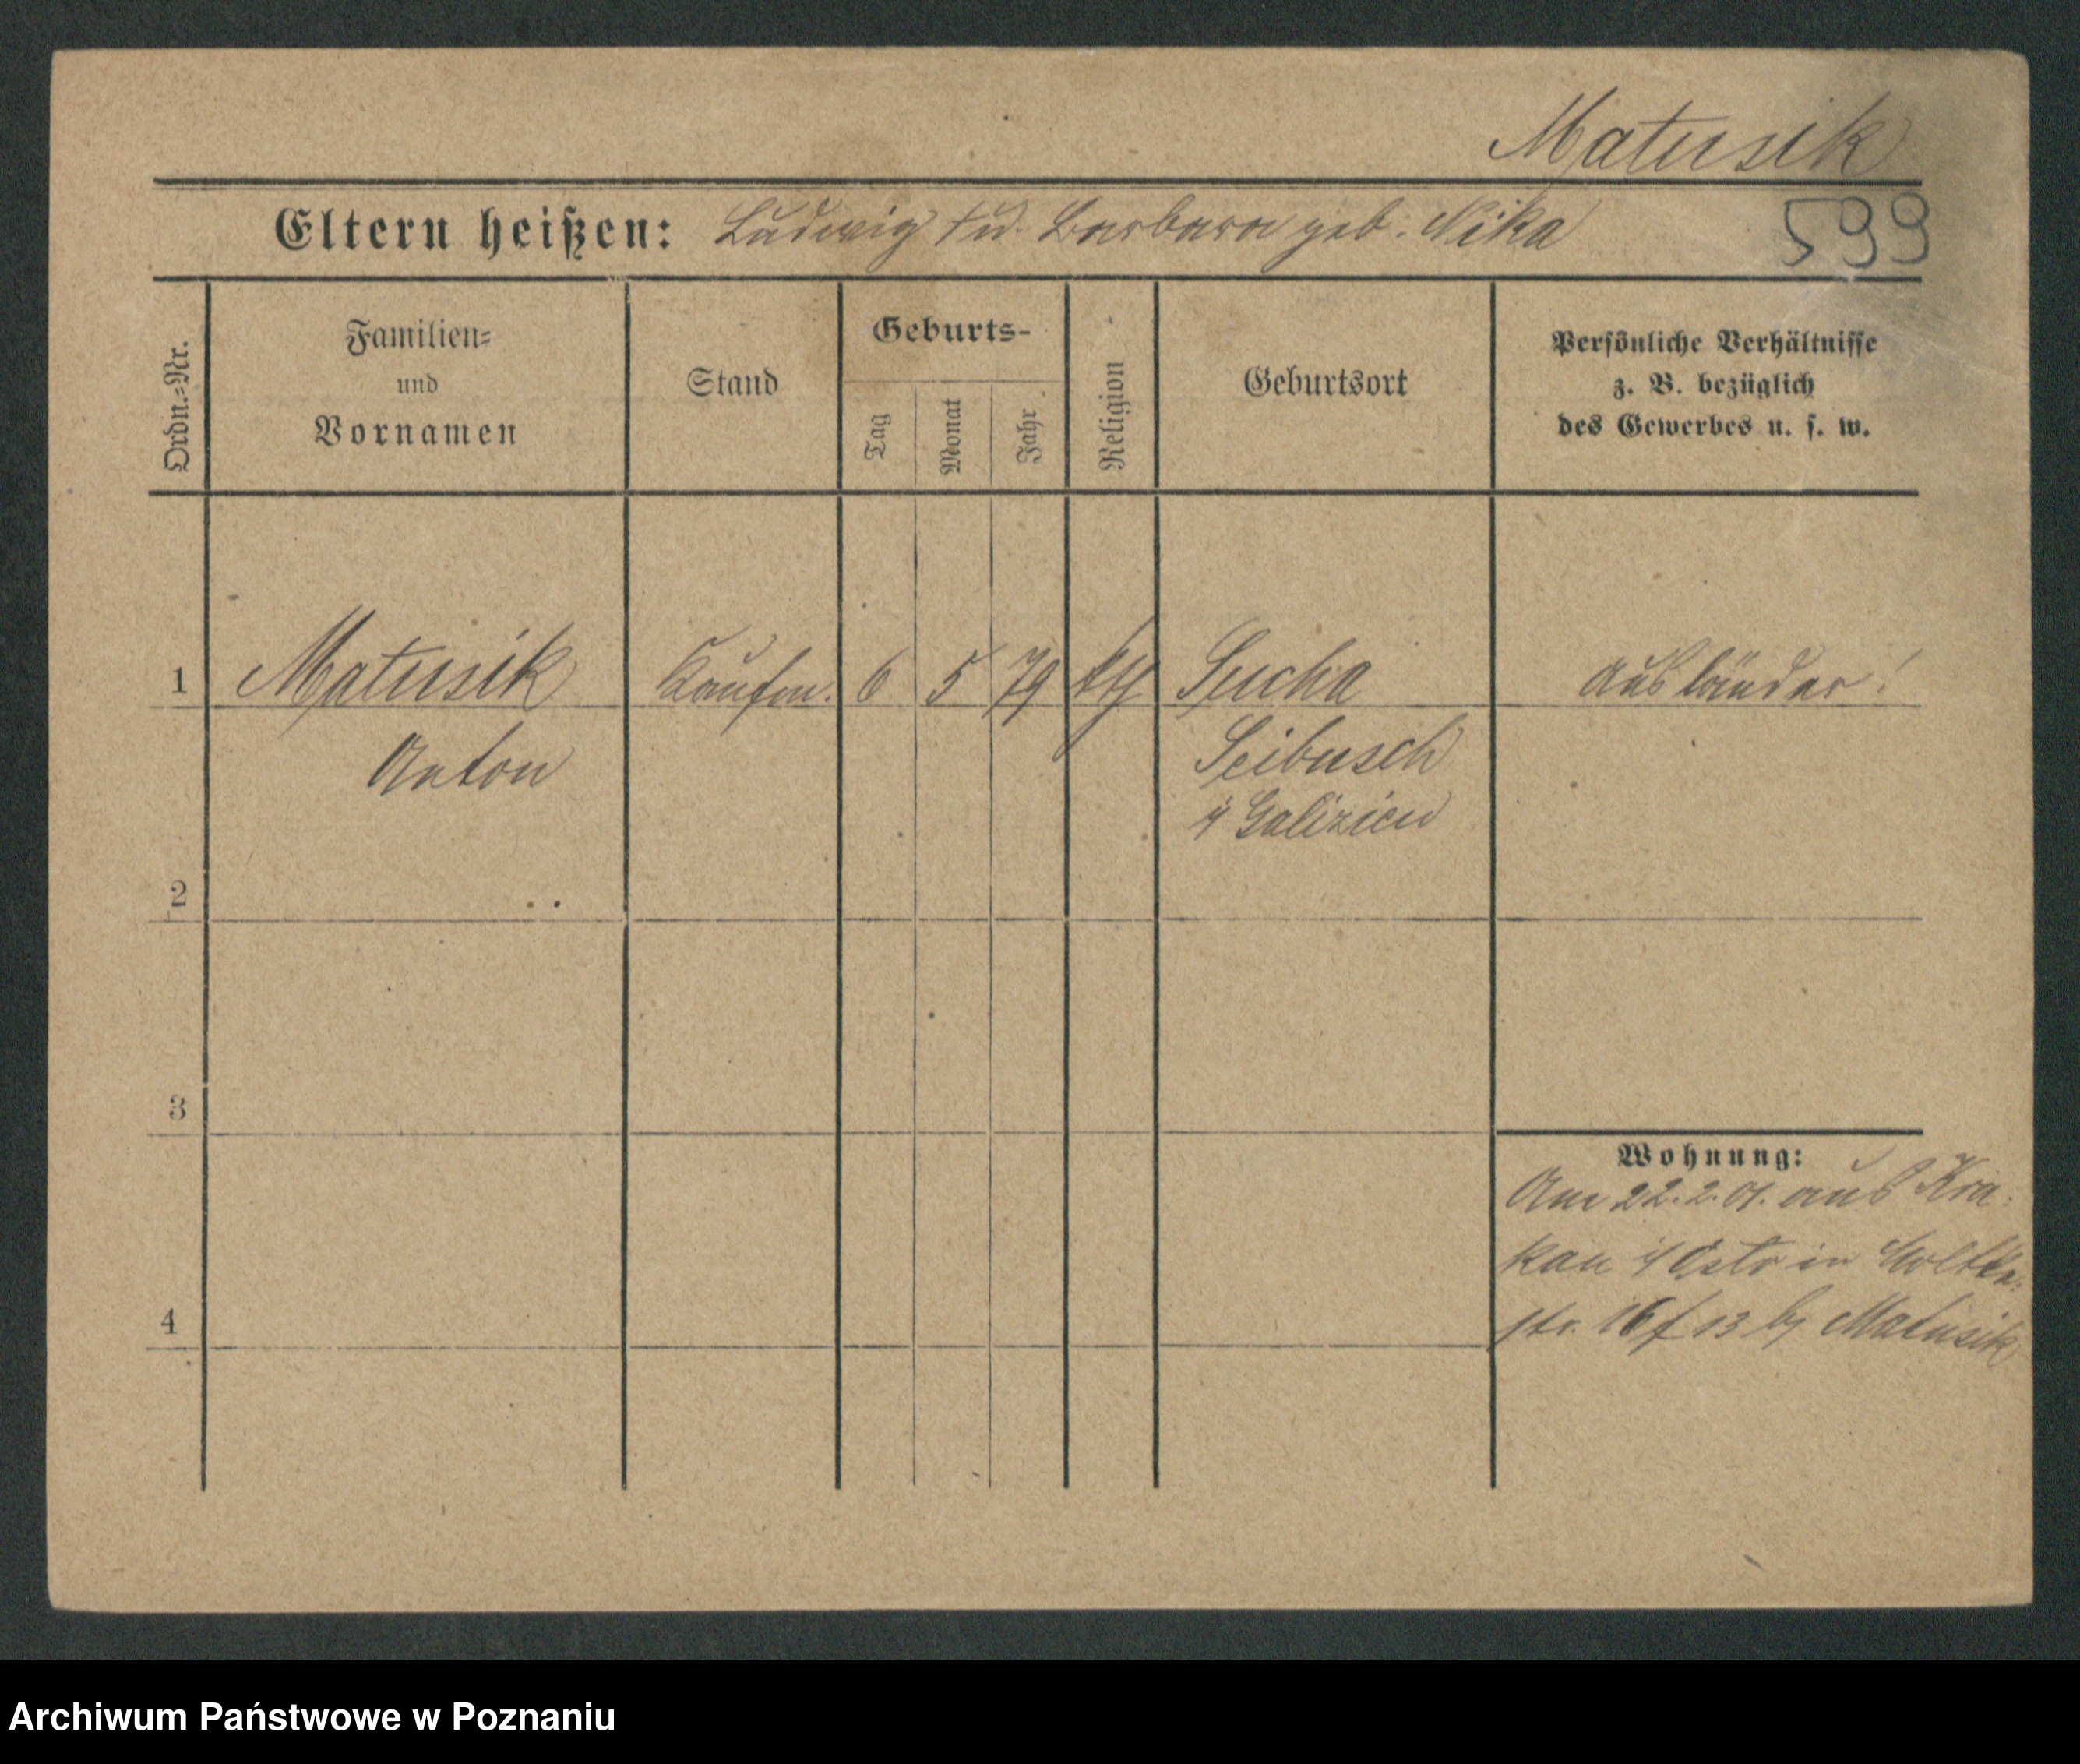 Matusik
Eltern heißen: Ludwig u. Barbara geb. Nika
599
Ordn.=Nr.
Familien=
und
Vornamen
Stand
Geburts-
Tag
Monat
Jahr
Religion
Geburtsort
Persönliche Verhältnisse
z. B. bezüglich
des Gewerbes u. s. w.
1
Matusik
Kaufm.
6
5
79
Sucha
Ausländer!
Anton
Seibusch
Galizien
2
3
Wohnung:
Am 22.2.01. aus Kra-
kau in
str. 16 13 Matusik
4
Archiwum Państwowe w Poznaniu